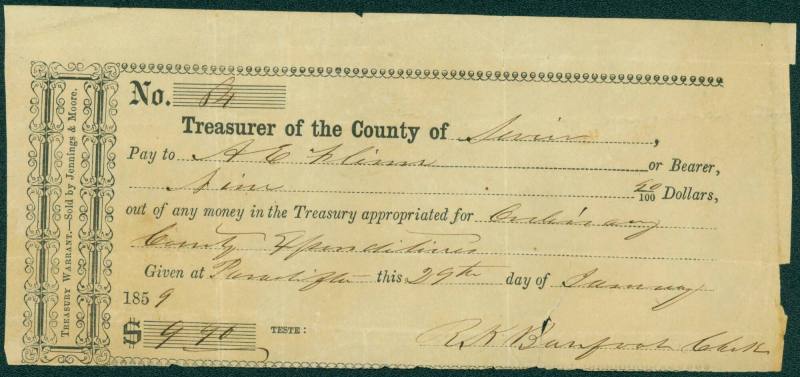 TREASURY WARRANT.—Sold by Jennings & Moore.
No. 84
Treasurer of the County of Sevier,
Pay to A E or Bearer,
Nine 90/100 Dollars,
out of any money in the Treasury appropriated for Ordinary
County Expenditures
Given at Paraclifta this 29th day of January
1859
$ 9 90 TESTE: R. K. Clerk